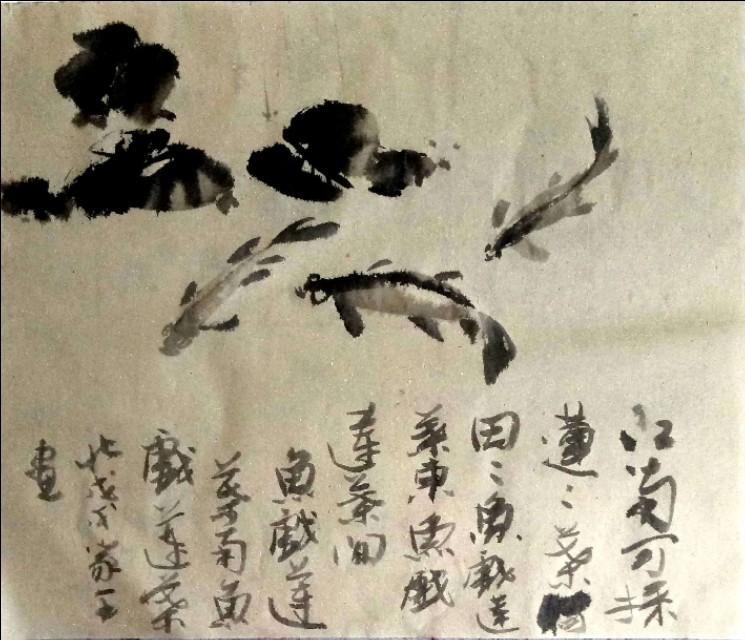 江南可採
蓮〻葉
田〻魚戲蓮
葉東魚戲
蓮葉间
魚戲蓮
葉南魚
戲蓮葉
北戊戌
畫